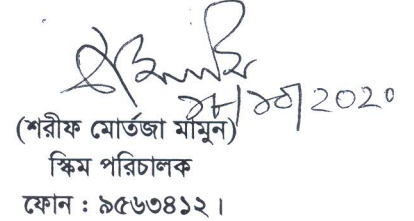 ২৮/১০/2020
(শরীফ মোর্তজা মামুন)
স্কিম পরিচালক
ফোন : ৯৫৬৩৪১২।